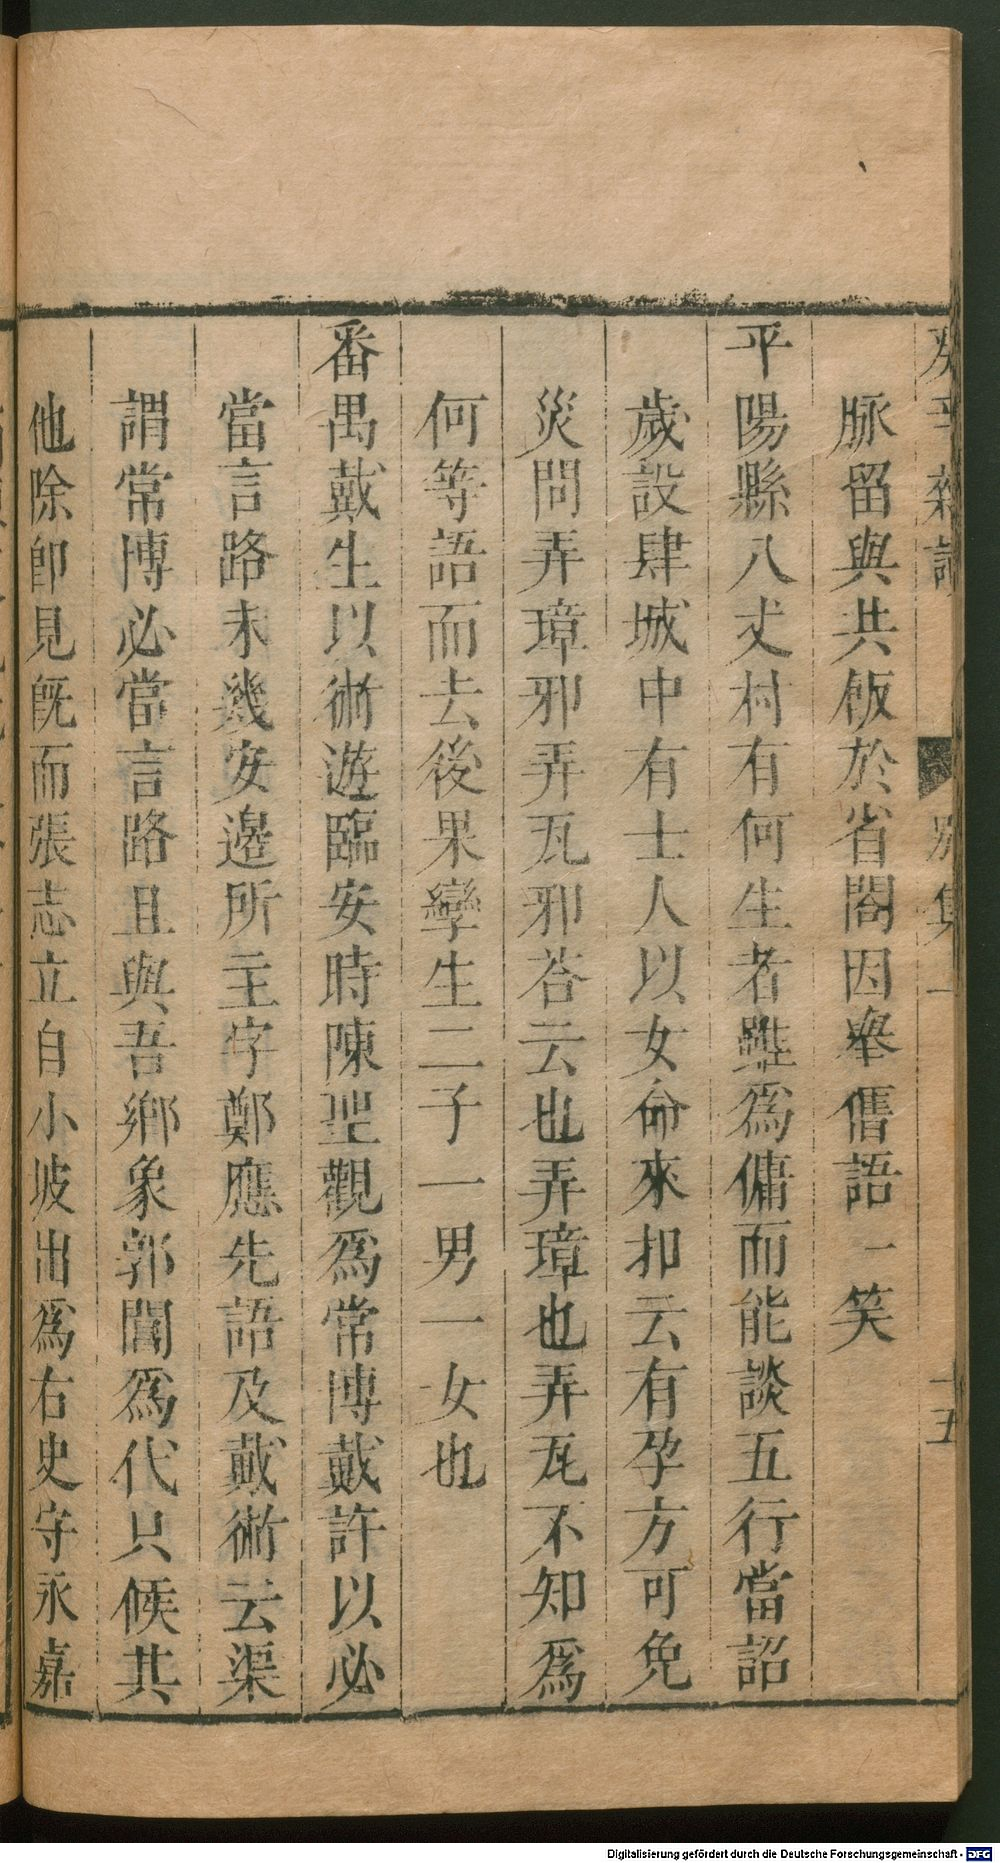 癸辛雜識 别集一 十五
脉留與共飯於省閤因舉舊語一笑
平陽縣八丈村有何生者雖爲傭而能談五行當詔
歲設肆城中有士人以女命來扣云有孕方可免
災問弄璋邪弄瓦邪荅云也弄璋也弄瓦不知爲
何等語而去後果孿生二子一男一女也
番禺戴生以術遊臨安時陳聖觀爲常博戴許以必
當言路未幾安邊所主字鄭應先語及戴術云渠
謂常博必當言路且與吾鄉象郭閶爲代只候共
他除即見旣而張志立自小坡出爲右史守永嘉
Digitalisierung gefördert durch die Deutsche Forschungsgemeinschaft - DFG